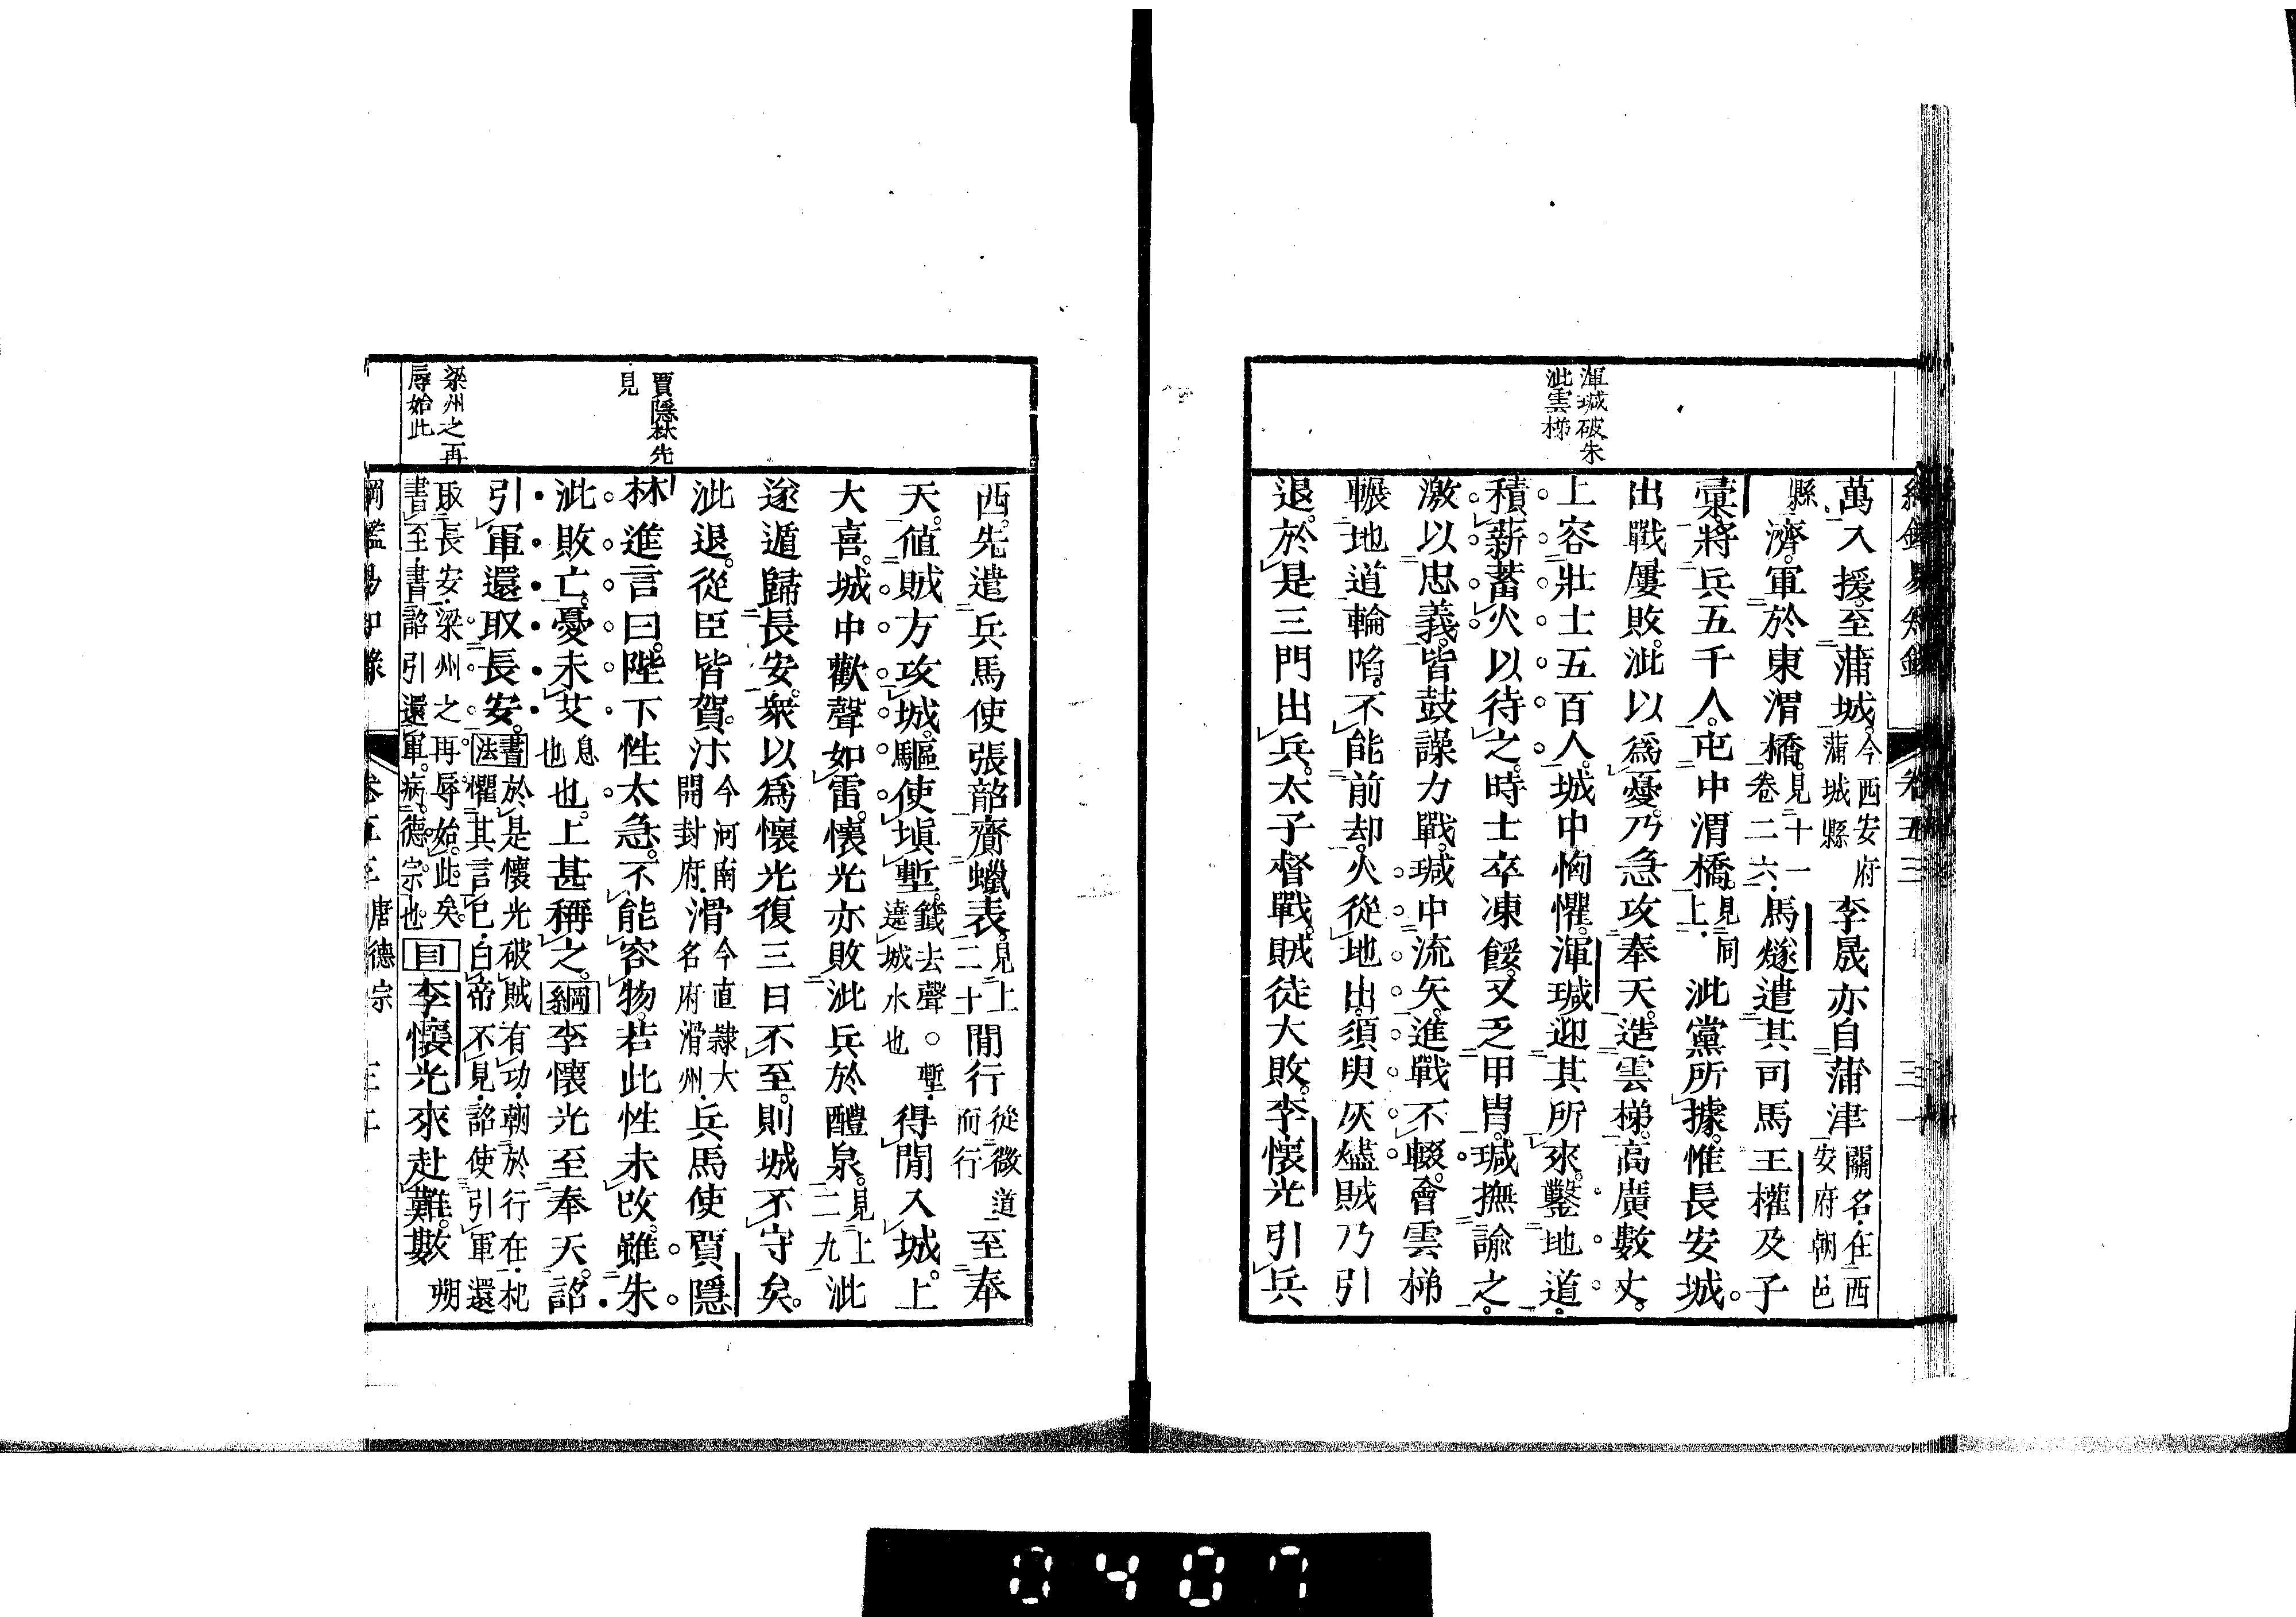 渾瑊破朱
泚雲梯
萬入援。至蒲城。今西安府蒲城縣李晟亦自蒲津關名。在西安府朝邑
縣、濟。軍於東渭橋。見十一卷二六馬燧遣其司馬王權及子
彙。將兵五千人。屯中渭橋。見同上泚黨所據。惟長安城。
出戰屢敗。泚以爲憂。乃急攻奉天。造雲梯。高廣數丈。
上容壯士五百人。城中恟懼。渾瑊迎其所來。鑿地道。
積薪蓄火以待之。時士卒凍餒。又乏甲冑。瑊撫諭之。
激以忠義。皆鼓譟力戰。瑊中流矢。進戰不輟。會雲梯
輾地道輪陷。不能前却。火從地出。須臾灰燼賊乃引
退。於是三門出兵。太子督戰。賊徒大敗。李懷光引兵
卷五三
賈隱林先
見
梁州之再
辱始此
西。先遣兵馬使張韶齎蠟表。見上二十間行從微道而行至奉
天。値賊方攻城。驅使塡塹。錢去聲○塹。遶城水也得間入城。上
大喜。城中歡聲如雷。懷光亦敗泚兵於醴泉。見上二九泚
遂遁歸長安。衆以爲懷光復三日不至。則城不守矣。
泚退。從臣皆賀。汴今河南開封府滑今直隷大名府滑州兵馬使賈隱
林進言曰。陛下性太急。不能容物。若此性未改。雖朱
泚敗亡。憂未艾息也也。上甚稱之。綱李懷光至奉天。詔
引軍還取長安。書法於是懷光破賊有功。朝於行在。杞懼其言已。白帝不見。詔使引軍還
取長安。梁州之再辱始此矣。書至。書詔引還軍。病德宗也。目李懷光來赴難。數朔
綱鑑易知錄 卷五三 唐德宗
0407